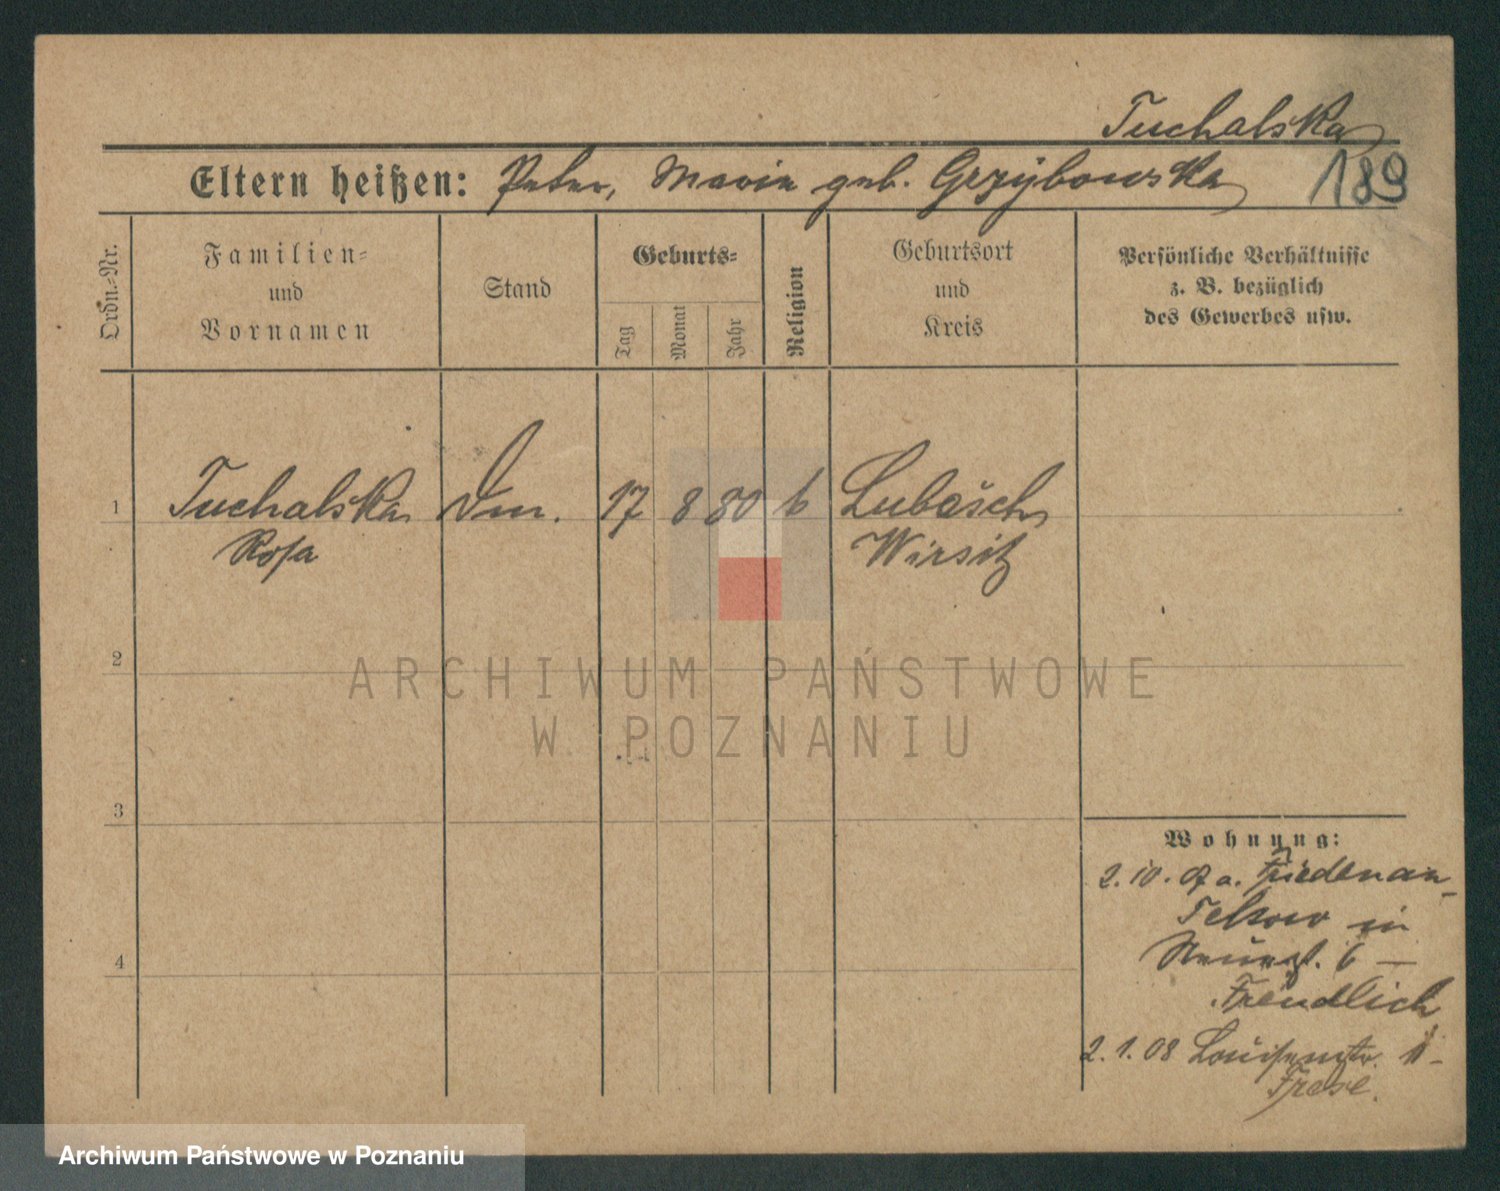 Tuchalska
Eltern heißen: Peter, Marie geb. Grzybowska 189
Ordn.-Nr.
Familien-
und
Vornamen
Stand
Geburts-
Tag
Monat
Jahr
Religion
Geburtsort
und
Kreis
Persönliche Verhältnisse
z. B. bezüglich
des Gewerbes usw.
1 Tuchalska 17 8 80 Lubasch
Rosa Wirsitz
2
ARCHIWUM PAŃSTWOWE
W POZNANIU
3
Wohnung:
2.10.07 a. Friedenau-
Teltow in
6 —
Freudlich
4
2.1.08 Louisenstr. 11-
Frese.
Archiwum Państwowe w Poznaniu